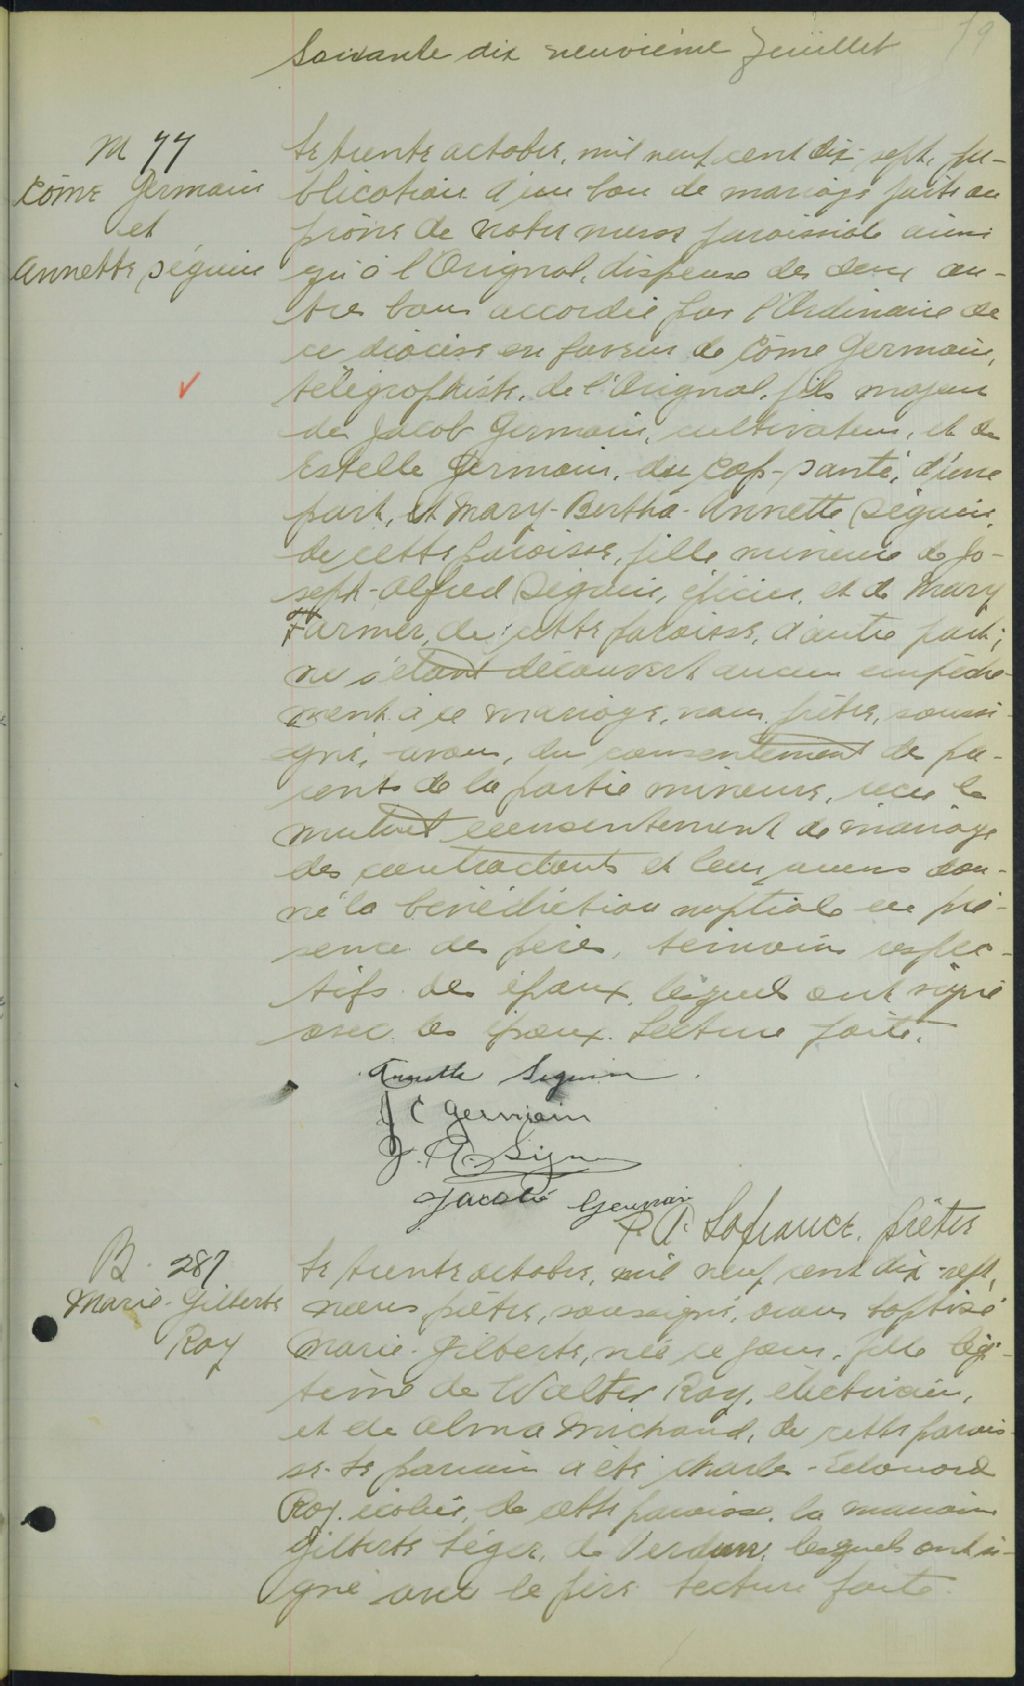 Soixante dix neuvième feuillet
79
M 77
Côme Germain
et
Annette Séguin
Le trente octobre, mil neuf cent dix-sept, pu-
blication d'un ban de mariage faite au
prône de notre messe paroissiale ainsi
qu'à l'Orignal, dispense des deux au-
tres bans accordée par l'Ordinaire de
ce diocèse en faveur de Côme Germain,
télégraphiste, de l'Orignal, fils majeur
de Jacob Germain, cultivateur, et de
Estelle Germain, du Cap-Santé, d'une
part, et Mary-Bertha-Annette Séguin,
de cette paroisse, fille mineure de Jo-
seph-Alfred Séguin, épicier, et de Mary
Farmer, de cette paroisse, d'autre part;
ne s'étant découvert aucun empêche-
ment à ce mariage, nous, prêtre, soussi-
gné, avons, du consentement des pa-
rents de la partie mineure, reçu le
mutuel consentement de mariage
des contractants et leur avons don-
né la bénédiction nuptiale en pré-
sence des pères, témoins respec-
tifs des époux, lesquels ont signé
avec les époux. Lecture faite.
Annette Seguin
J C Germain
J. A. Seguin
Jacob Germain
Lafrance, prêtre
B. 287
Marie-Gilberte
Roy
Le trente octobre, mil neuf cent dix-sept,
nous prêtre, soussigné, avons baptisé
Marie-Gilberte, née ce jour, fille légi-
time de Walter Roy, électricien,
et de Alma Michaud, de cette parois-
se. Le parrain a été Charles-Edouard
Roy, écolier, de cette paroisse, la marraine
Gilberte Léger, de Verdun, lesquels ont si-
gné avec le père. Lecture faite.